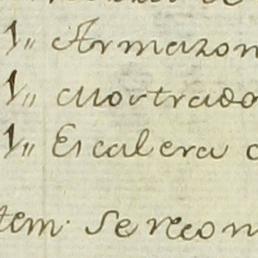 1,, Armazon
1,, mostrado
1,, Escalera
tem. Se recon